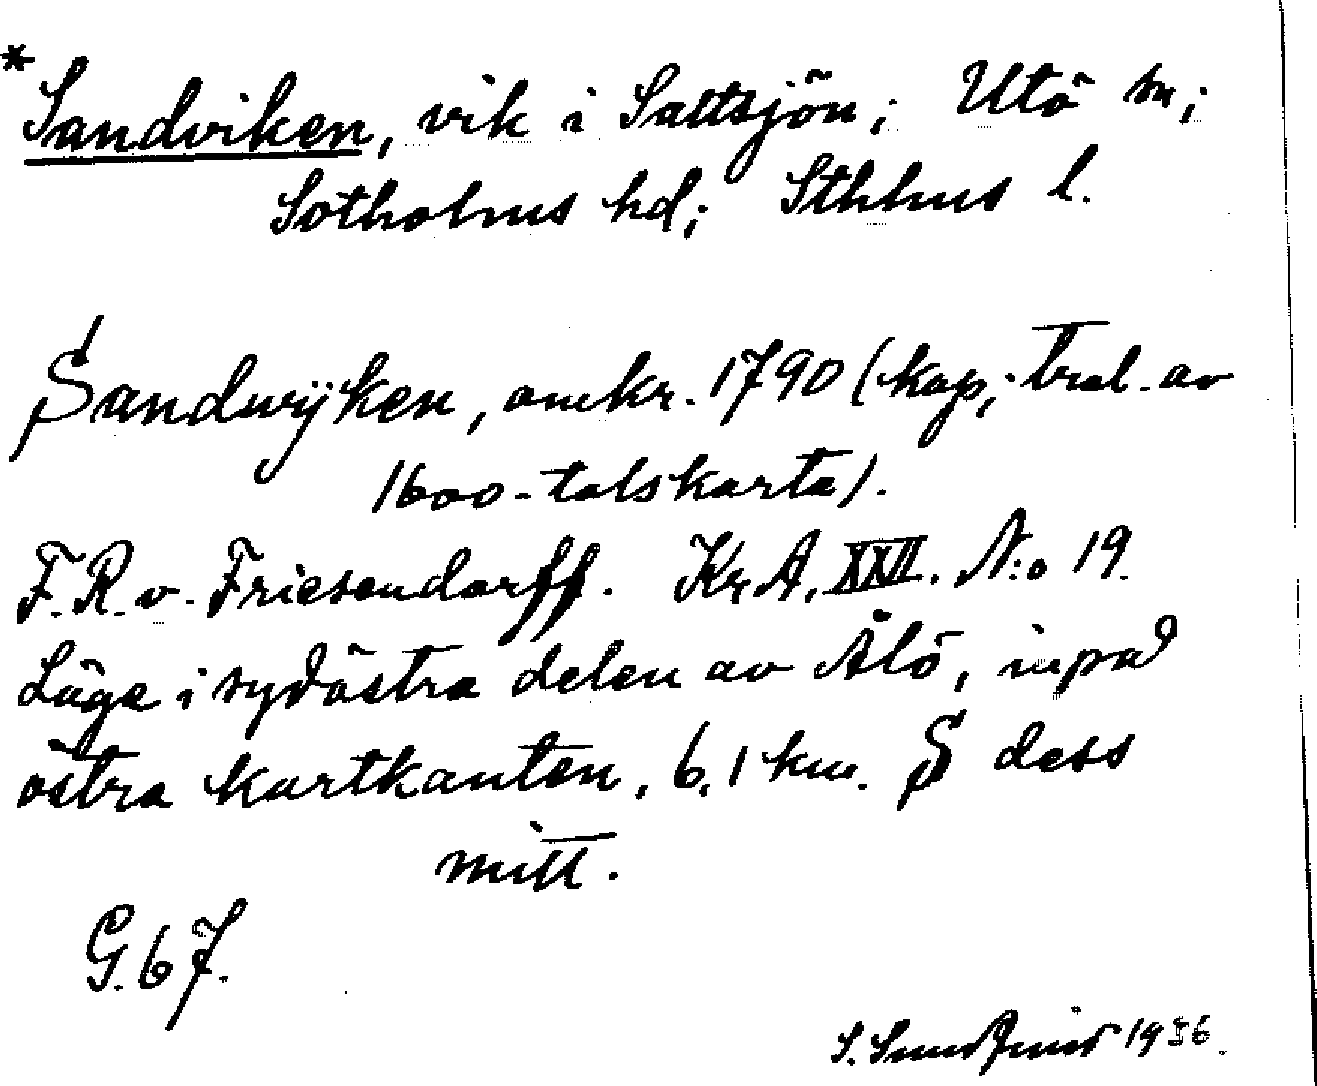 *Sandviken, vik i Saltsjön; Utö sn;
Sotholms hd; Sthlms l.
Sandwijken, omkr. 1790 (kop; trol. av
1600-talskarta).
F. R. v. Friesendorff. Kr. A. XXII. N:o 19.
Läge i sydöstra delen av Ålö, inpå
östra kartkanten, 6,1 km. S dess
mitt.
G. 67.
S. 1936.